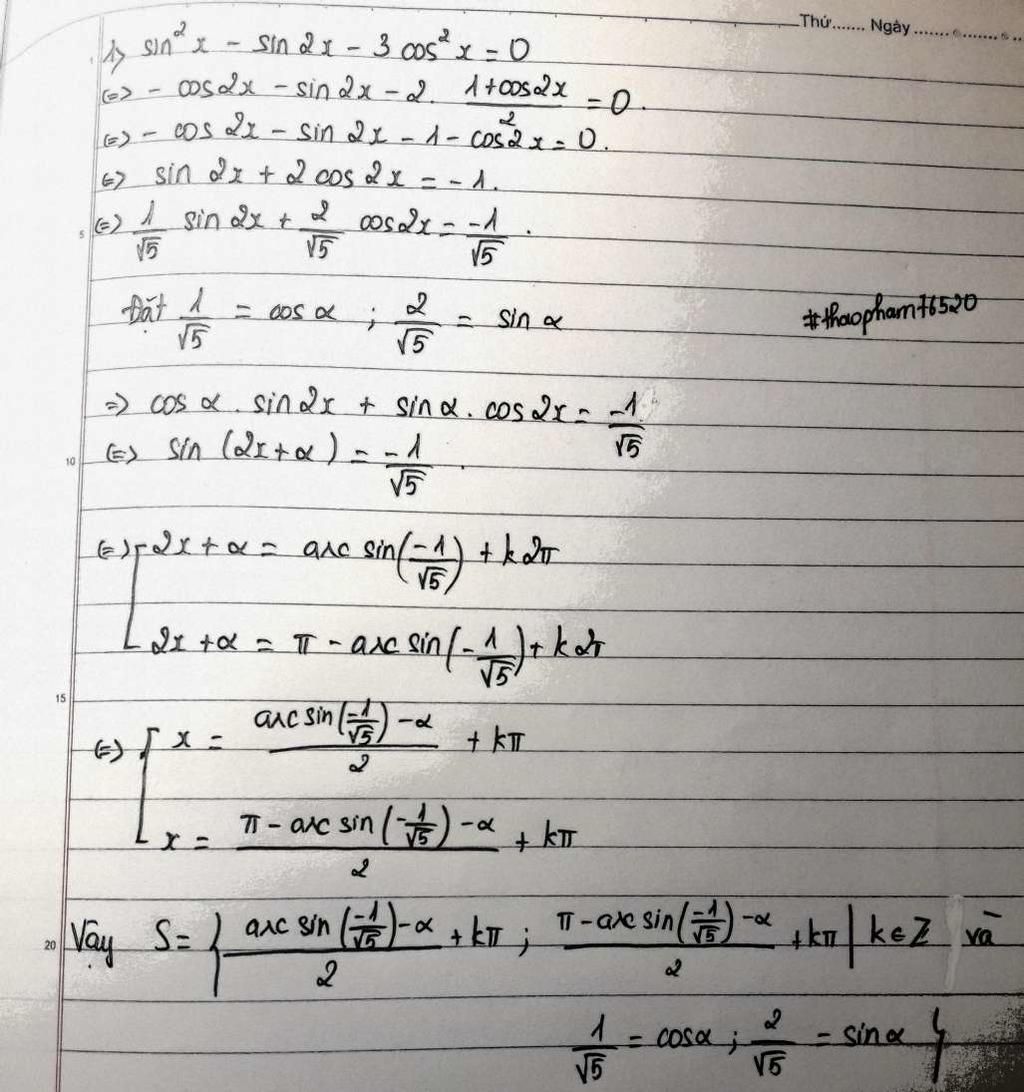 Thứ....... Ngày...............
1, sin² x - sin 2x - 3 cos² x = 0
<=> - cos2x - sin 2x - 2. (1+cos2x)/2 = 0.
<=> - cos 2x - sin 2x - 1 - cos2x = 0.
<=> sin 2x + 2 cos 2x = -1.
5 <=> 1/√5 sin 2x + 2/√5 cos2x = -1/√5 .
Đặt 1/√5 = cos α ; 2/√5 = sin α #thaopham76520
=> cos α . sin 2x + sin α . cos 2x = -1/√5
10 <=> sin (2x+α) = -1/√5 .
<=> [ 2x + α = arc sin(-1/√5) + k2π
2x + α = π - arc sin(-1/√5) + k2π
15
<=> [ x = (arc sin(-1/√5) - α)/2 + kπ
x = (π - arc sin(-1/√5) - α)/2 + kπ
20 Vậy S = { (arc sin(-1/√5) - α)/2 + kπ ; (π - arc sin(-1/√5) - α)/2 + kπ | k ∈ Z và
1/√5 = cosα ; 2/√5 = sin α }